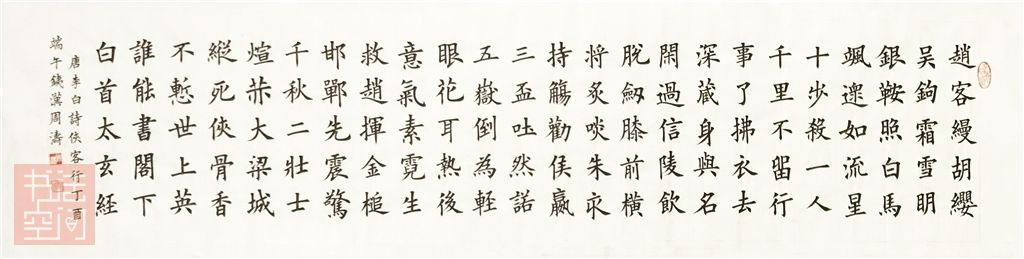 趙客縵胡纓
吳鉤霜雪明
銀鞍照白馬
颯遝如流星
十步殺一人
千里不畱行
事了拂衣去
深藏身與名
閒過信陵飲
脫劒膝前橫
將炙啖朱亥
持觴勸侯嬴
三盃吐然諾
五嶽倒為輕
眼花耳熱後
意氣素霓生
救趙揮金槌
邯鄲先震驚
千秋二壯士
煊赫大梁城
縱死俠骨香
不慙世上英
誰能書閣下
白首太玄經
唐李白詩俠客行丁酉
端午周濤
书法空间